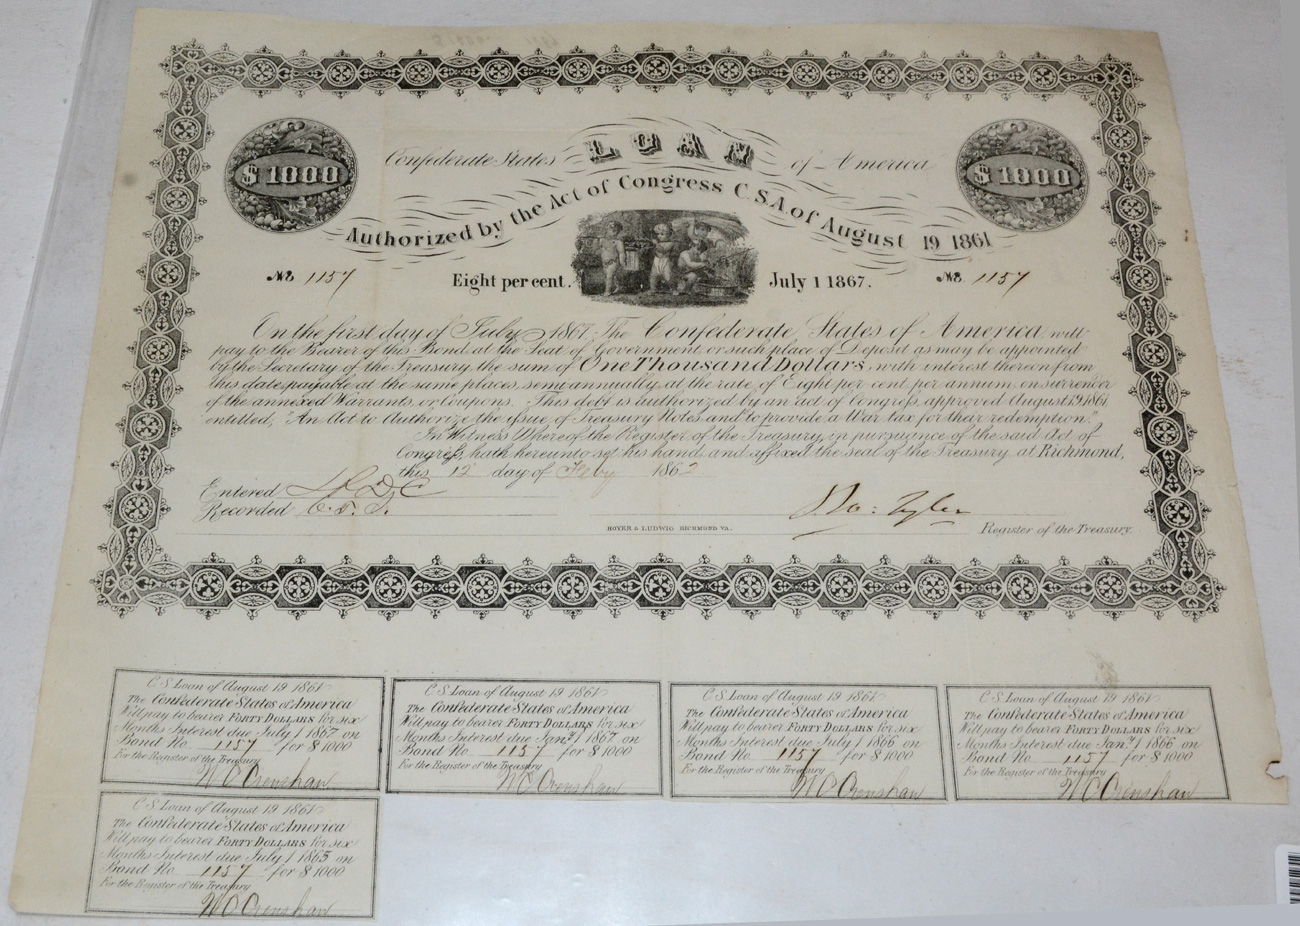 Confederate States LOAN of America
Authorized by the Act of Congress C.S.A. of August 19 1861
$1000
$1000
No. 1157
Eight per cent. July 1 1867.
No. 1157
On the first day of July 1867 The Confederate States of America will
pay to the Bearer of this Bond at the Seat of Government or such place of Deposit as may be appointed
by the Secretary of the Treasury the sum of One Thousand Dollars, with interest thereon from
this date payable at the same places, semi annually, at the rate of Eight per cent per annum on surrender
of the annexed Warrants, or Coupons. This debt is authorized by an act of Congress, approved August 19, 1861,
entitled, "An Act to Authorize the issue of Treasury Notes and to provide a War tax for their redemption."
In Witness Whereof the Register of the Treasury, in pursuance of the said Act of
Congress hath hereunto set his hand and affixed the seal of the Treasury at Richmond,
this 12 day of Feby 1862
Entered
Recorded C. T. J.
Ro: Tyler
HOYER & LUDWIG RICHMOND VA.
Register of the Treasury.
C S Loan of August 19 1861
The Confederate States of America
Will pay to bearer FORTY DOLLARS for six
Months Interest due July 1 1867 on
Bond No. 1157 for $1000
For the Register of the Treasury
W C Crenshaw
C. S. Loan of August 19 1861
The Confederate States of America
Will pay to bearer FORTY DOLLARS for six
Months Interest due Jany 1 1867 on
Bond No. 1157 for $1000
For the Register of the Treasury
W C Crenshaw
C S Loan of August 19 1861
The Confederate States of America
Will pay to bearer FORTY DOLLARS for six
Months Interest due July 1 1866 on
Bond No. 1157 for $1000
For the Register of the Treasury
W C Crenshaw
C S Loan of August 19 1861
The Confederate States of America
Will pay to bearer FORTY DOLLARS for six
Months Interest due Jany 1 1866 on
Bond No. 1157 for $1000
For the Register of the Treasury
W C Crenshaw
C S Loan of August 19 1861
The Confederate States of America
Will pay to bearer FORTY DOLLARS for six
Months Interest due July 1 1865 on
Bond No. 1157 for $1000
For the Register of the Treasury
W C Crenshaw